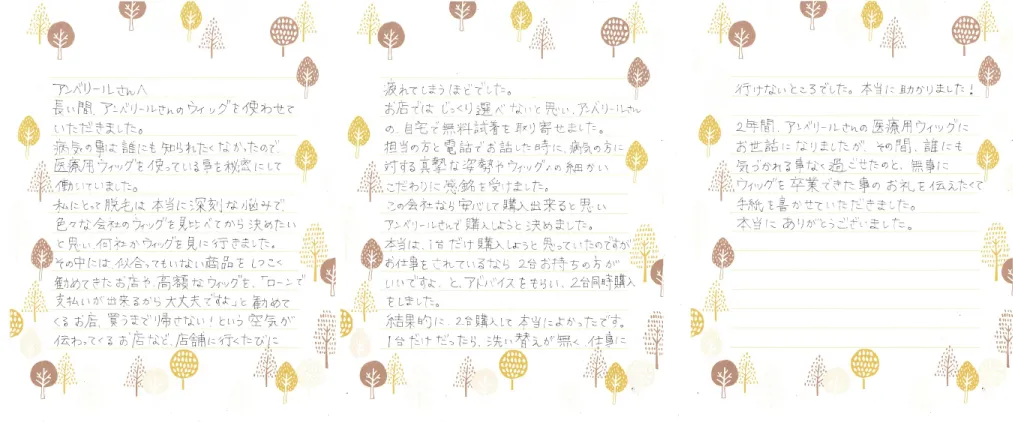 アンベリールさんへ
長い間、アンベリールさんのウィッグを使わせて
いただきました。
病気の事は誰にも知られたくなかったので、
医療用ウィッグを使っている事を秘密にして
働いていました。
私にとって脱毛は本当に深刻な悩みで、
色々な会社のウィッグを見比べてから決めたい
と思い、何社かウィッグを見に行きました。
その中には似合ってもいない商品をしつこく
勧めてきたお店や、高額なウィッグを、「ローンで
支払いが出来るから大丈夫ですよ」と勧めて
くるお店、買うまで帰さない！という空気が
伝わってくるお店など、店舗に行くたびに
疲れてしまうほどでした。
お店ではじっくり選べないと思い、アンベリールさん
の、自宅で無料試着を取り寄せました。
担当の方と電話でお話した時に、病気の方に
対する真摯な姿勢やウィッグへの細かい
こだわりに感銘を受けました。
この会社なら安心して購入出来ると思い
アンベリールさんで購入しようと決めました。
本当は、1台だけ購入しようと思っていたのですが
お仕事をされているなら2台お持ちの方が
いいですよ、と、アドバイスをもらい、2台同時購入
をしました。
結果的に、2台購入して本当によかったです。
1台だけだったら、洗い替えが無く、仕事に
行けないところでした。本当に助かりました！
2年間、アンベリールさんの医療用ウィッグに
お世話になりましたが、その間、誰にも
気づかれる事なく過ごせたのと、無事に
ウィッグを卒業できた事のお礼を伝えたくて
手紙を書かせていただきました。
本当にありがとうございました。